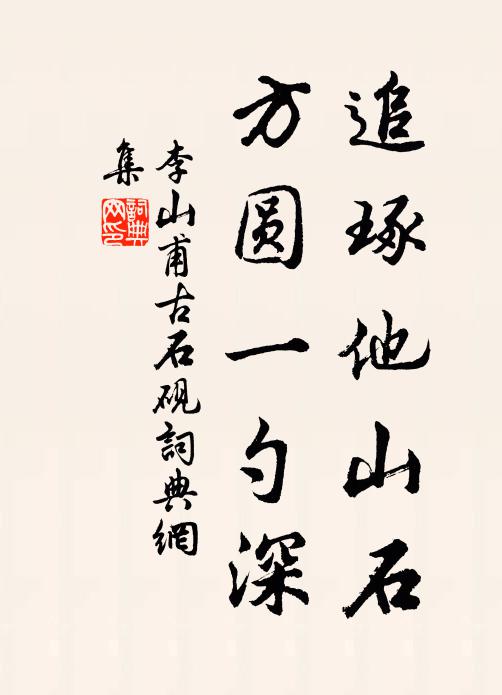 追琢他山石
方圆一勺深
李山甫古石砚詞典網
集
詞典網印